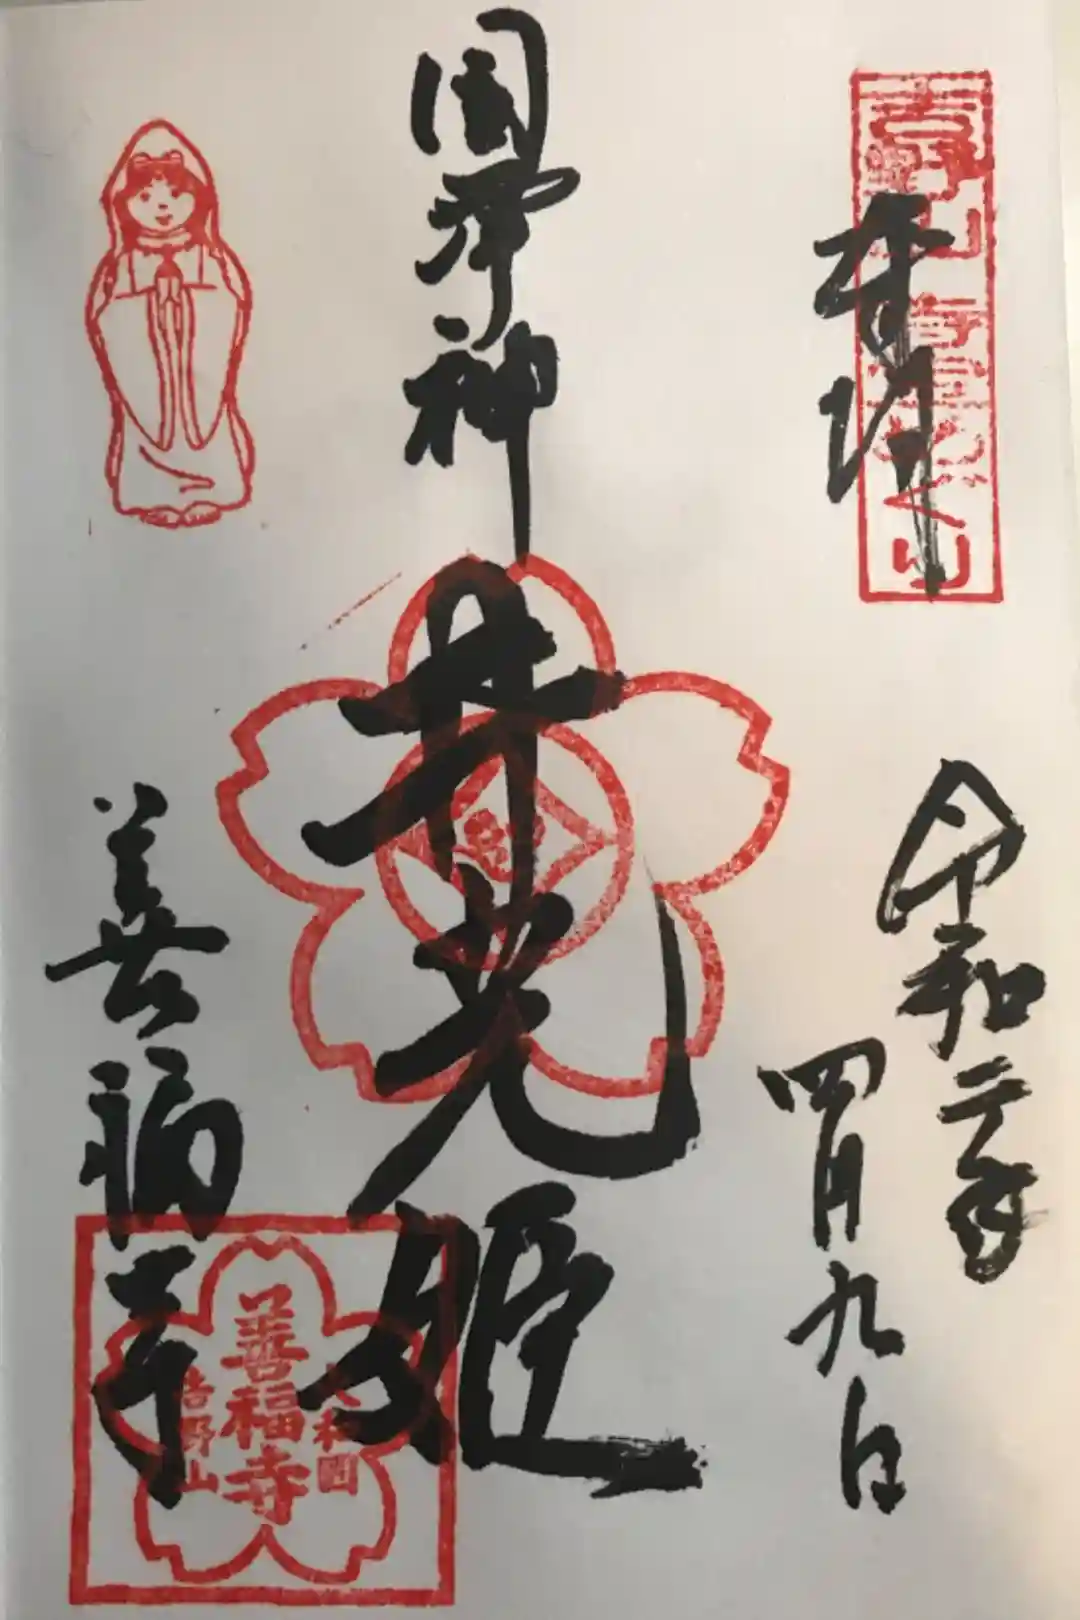 吉野山
奉拝
令和二年
四月九日
国津神
井光姫
善福寺
大和国
善福寺
吉野山